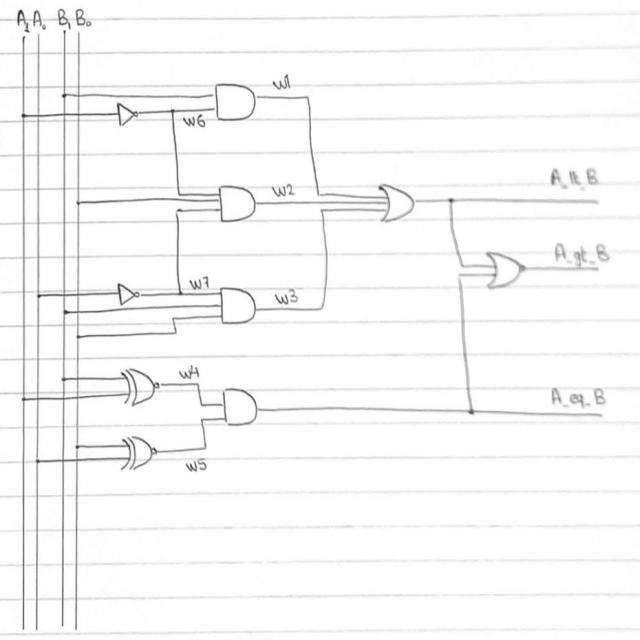 A₁ A₀ B₁ B₀
W1
W6
W2
A_lt_B
A_gt_B
W7
W3
W4
A_eq_B
W5